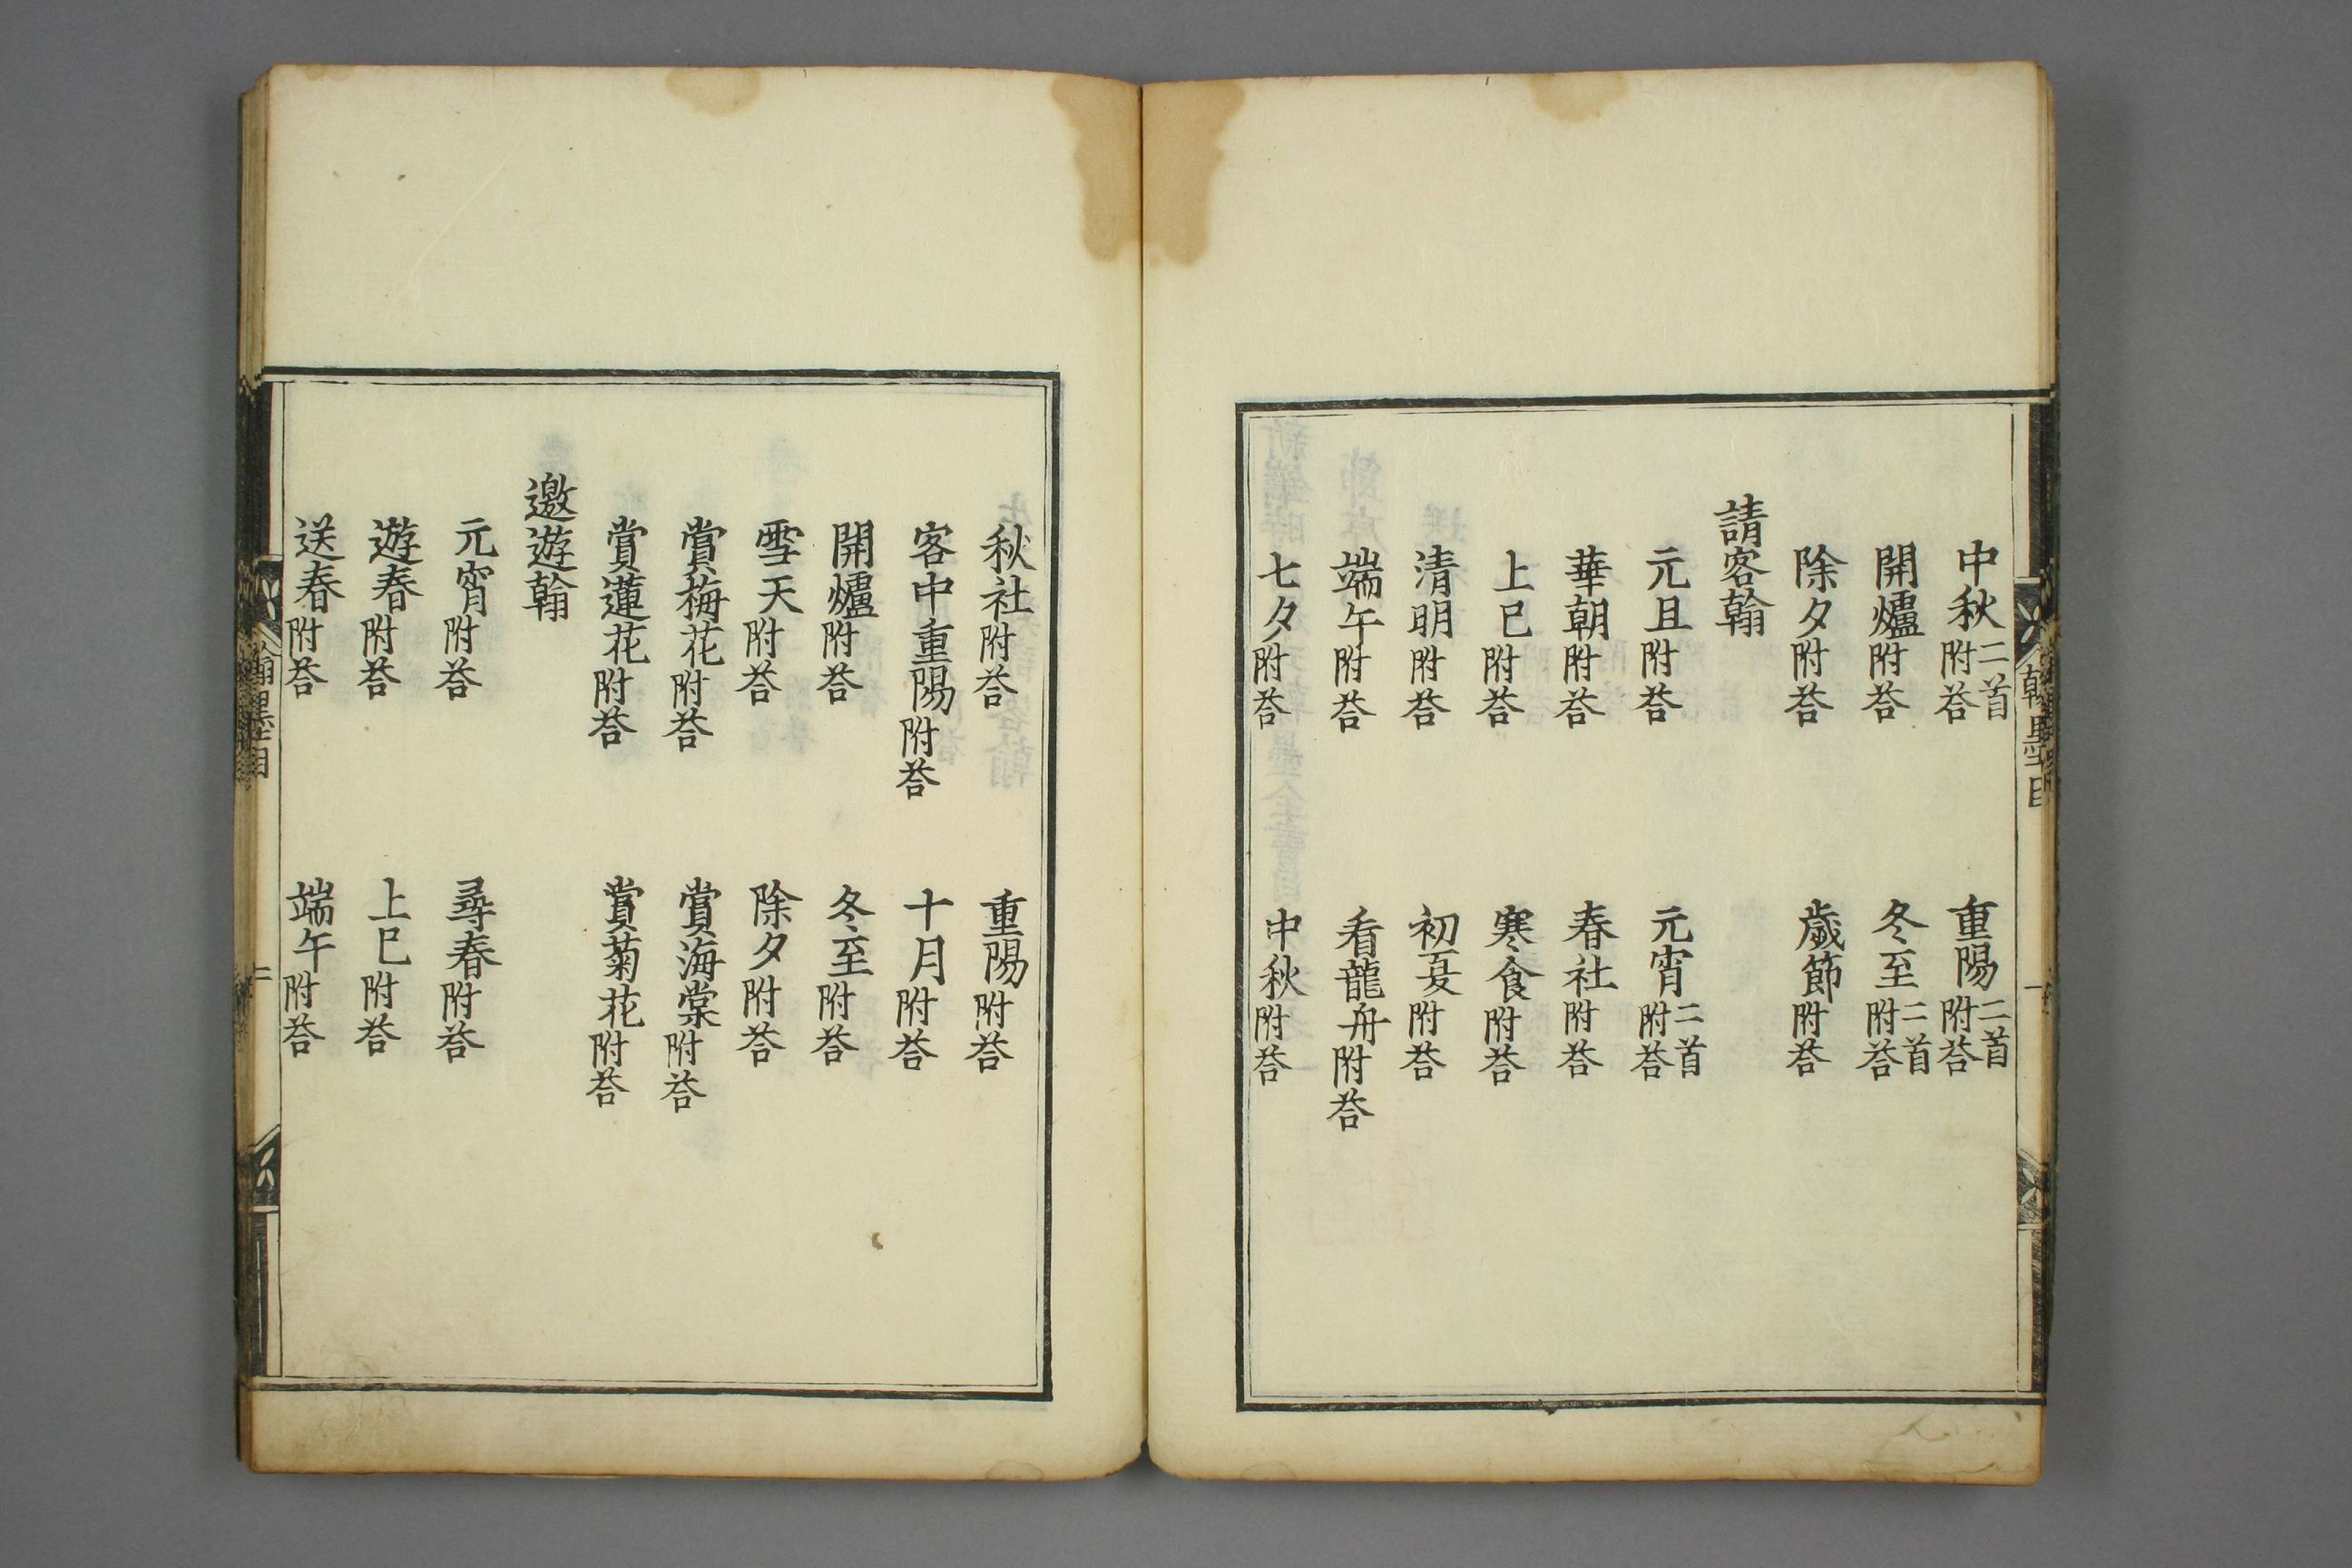 中秋二首附荅　重陽二首附荅
開爐附荅　冬至二首附荅
除夕附荅　歲節附荅
請客翰
元旦附荅　元宵二首附荅
華朝附荅　春社附荅
上巳附荅　寒食附荅
清明附荅　初夏附荅
端午附荅　看龍舟附荅
七夕附荅　中秋附荅
秋社附荅　重陽附荅
客中重陽附荅　十月附荅
開爐附荅　冬至附荅
雪天附荅　除夕附荅
賞梅花附荅　賞海棠附荅
賞蓮花附荅　賞菊花附荅
邀遊翰
元宵附荅　尋春附荅
遊春附荅　上巳附荅
送春附荅　端午附荅
翰墨目
二
翰墨目
一